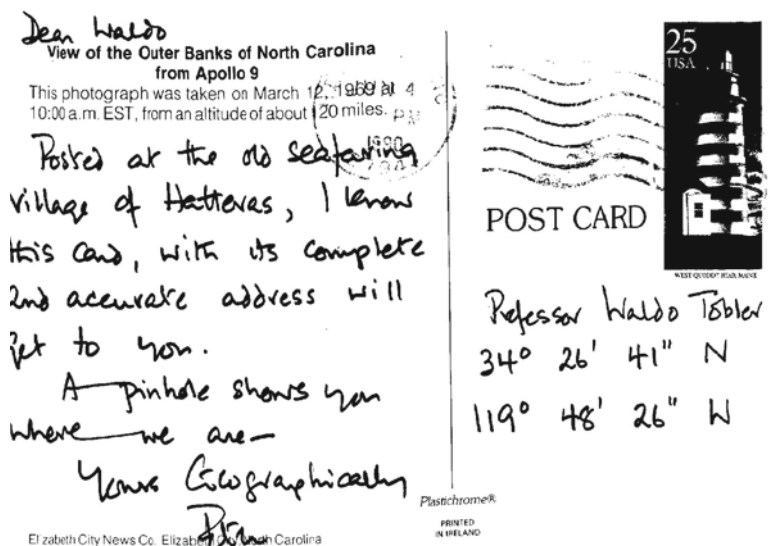 Dear Waldo
View of the Outer Banks of North Carolina
from Apollo 9
This photograph was taken on March 12, 1969 at
10:00 a.m. EST, from an altitude of about 120 miles.
4
PM
1990
Posted at the old seafaring
village of Hatteras, I know
this card, with its complete
and accurate address will
get to you.
A pinhole shows you
where we are—
Yours Geographically
Elizabeth City News Co. Elizabeth City North Carolina
25
USA
WEST QUODDY HEAD, MAINE
POST CARD
Professor Waldo Tobler
34° 26' 41" N
119° 48' 26" W
Plastichrome®
PRINTED
IN IRELAND